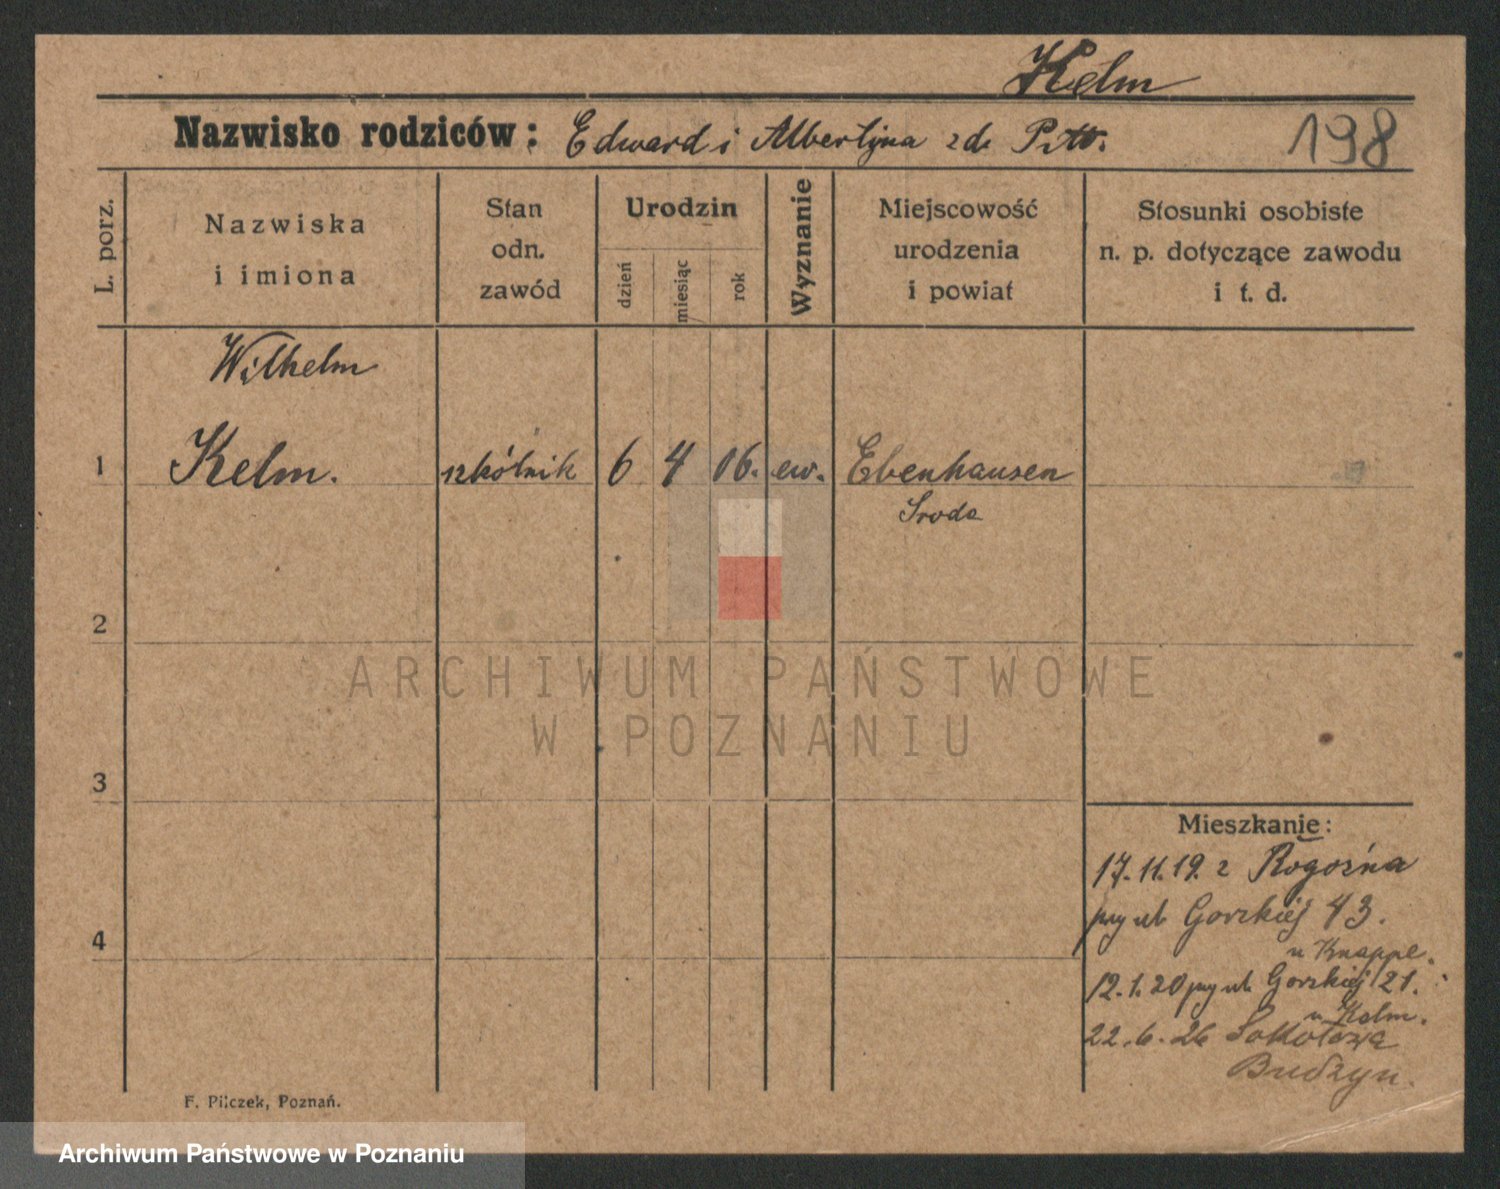 Kelm
Nazwisko rodziców: Edward i Albertyna zd.
198
L. porz.
Nazwiska
i imiona
Stan
odn.
zawód
Urodzin
dzień
miesiąc
rok
Wyznanie
Miejscowość
urodzenia
i powiat
Stosunki osobiste
n. p. dotyczące zawodu
i t. d.
Wilhelm
1 Kelm. szkólnik 6 4 06. ew. Ebenhausen
Sroda
2
ARCHIWUM PAŃSTWOWE
W POZNANIU
3
Mieszkanie:
17.11.19. z Rogoźna
przy ul. Gorzkiéj 43.
4
u Knappe.
12.1.20 przy ul. Gorzkiéj 21.
u Kelm.
22.6.26
Budzyn.
F. Pilczek, Poznań.
Archiwum Państwowe w Poznaniu